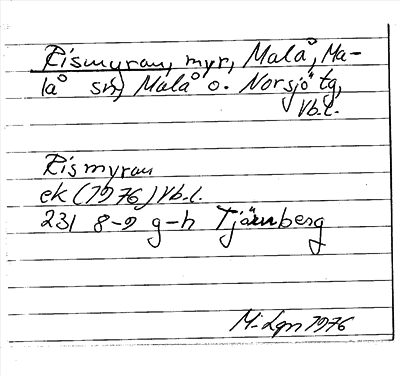 Rismyran, myr, Malå, Ma-
lå sn, Malå o. Norsjö tg,
Vb.l.
Rismyran
ek (1976) Vb.l.
231 8-9 g-h Tjärnberg
M. Lgn 1976